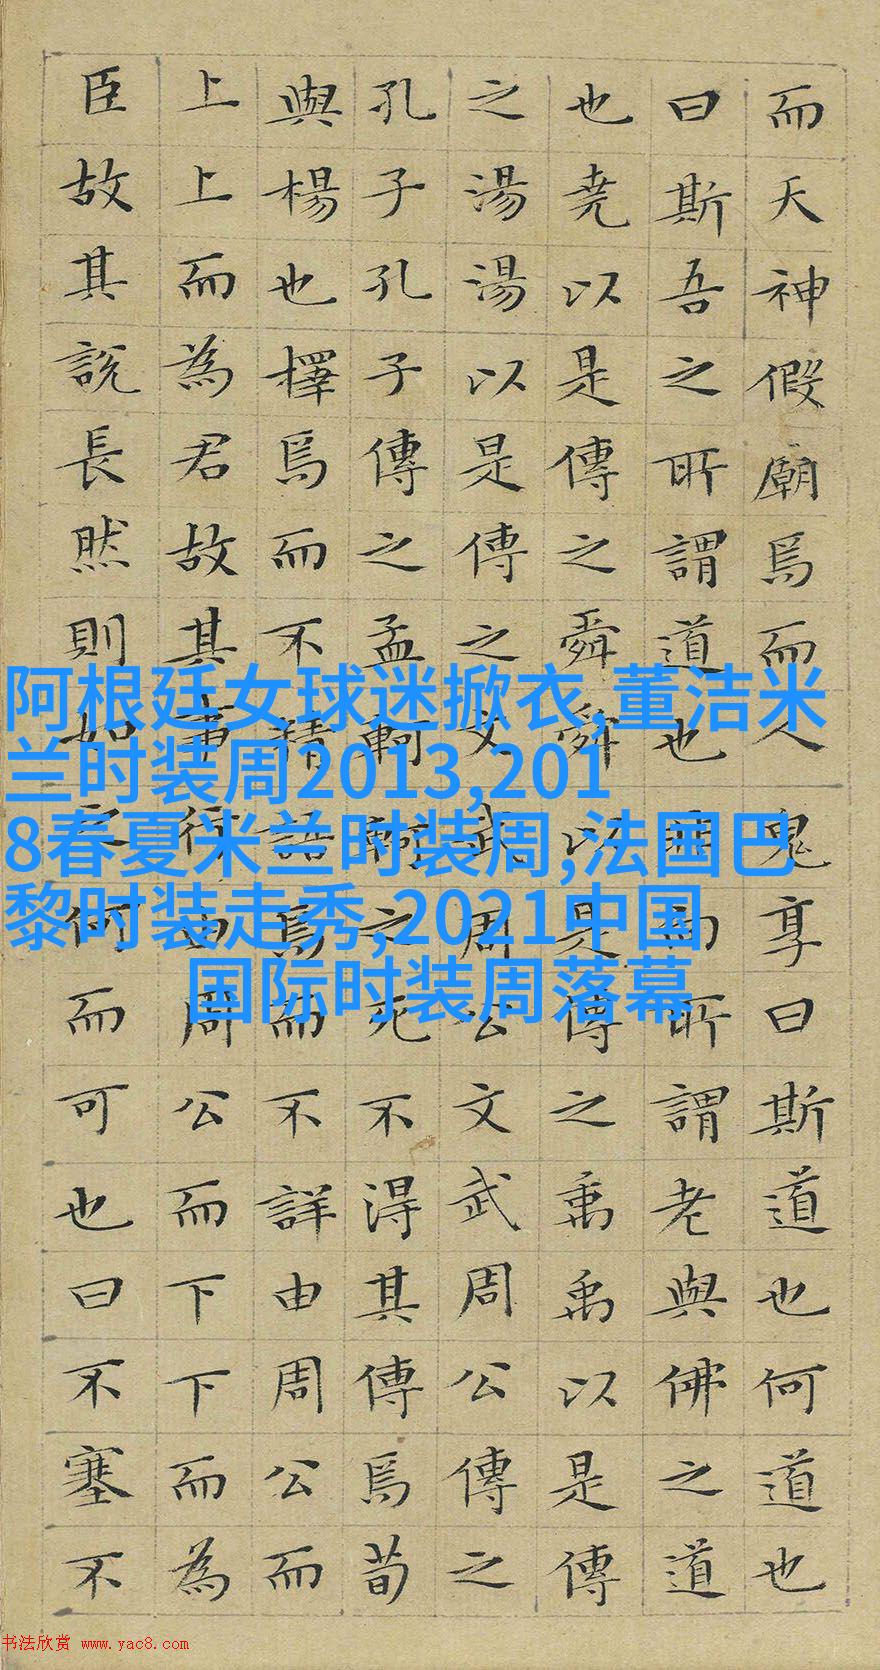 而天神假廟焉而人鬼享曰斯道也何道也
曰斯吾之所謂道也非向所謂老與佛之道
也堯以是傳之舜舜以是傳之禹禹以是傳
之湯湯以是傳之文武周公文武周公傳之
孔子孔子傳之孟軻軻之死不得其傳焉荀
與楊也擇焉而不精語焉而不詳由周公而
上上而為君故其事行由周公而下下而為
臣故其說長然則如之何而可也曰不塞不
阿根廷女球迷掀衣,董洁米
兰时装周2013,201
8春夏米兰时装周,法国巴
黎时装走秀,2021中国
国际时装周落幕
书法欣赏 www.yac8.com